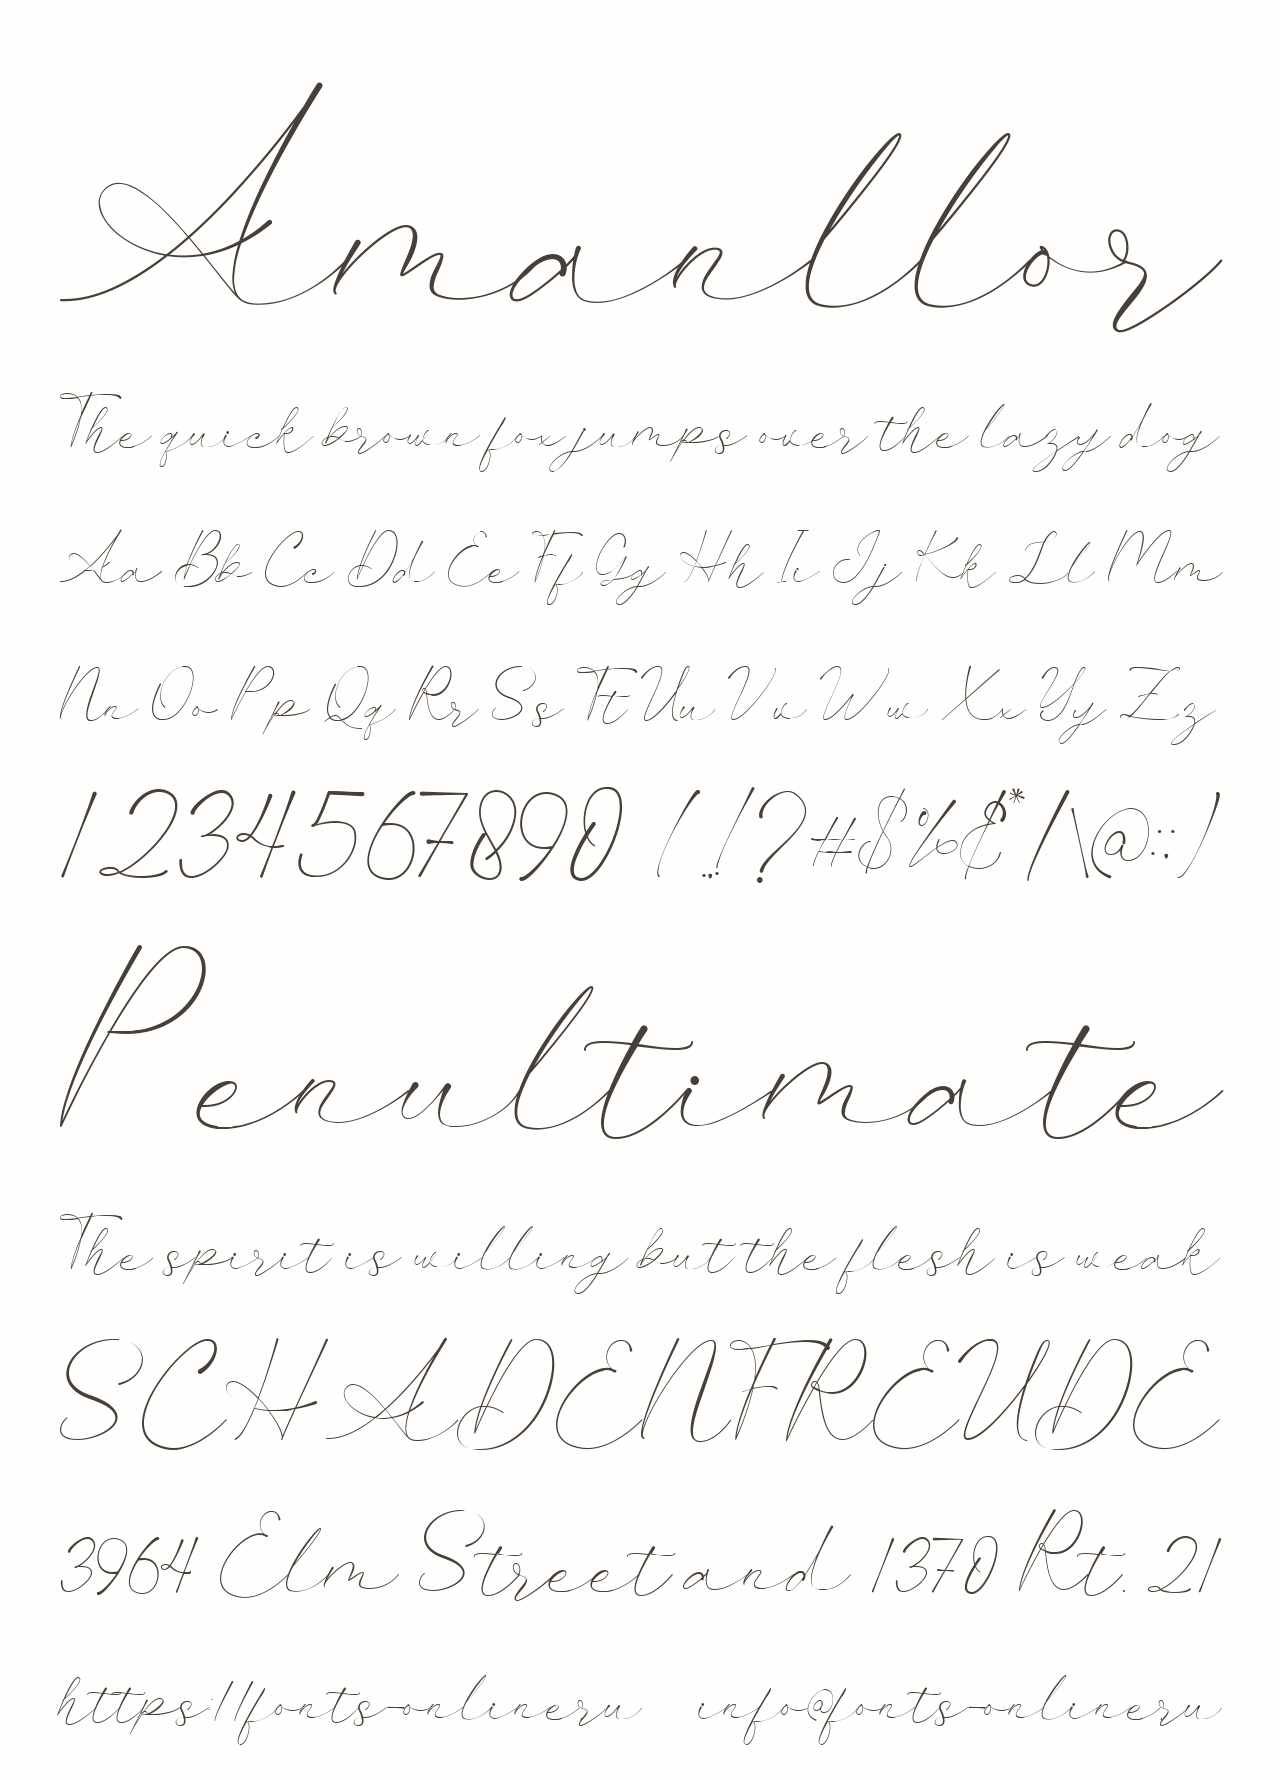 Amanllor
The quick brown fox jumps over the lazy dog
Aa Bb Cc Dd Ee Ff Gg Hh Ii Jj Kk Ll Mm
Nn Oo Pp Qq Rr Ss Tt Uu Vv Ww Xx Yy Zz
1234567890 (.,.!?#$%&*/\@:;)
Penultimate
The spirit is willing but the flesh is weak
SCHADENFREUDE
3964 Elm Street and 1370 Rt. 21
https://fonts-onlineru info@fonts-onlineru